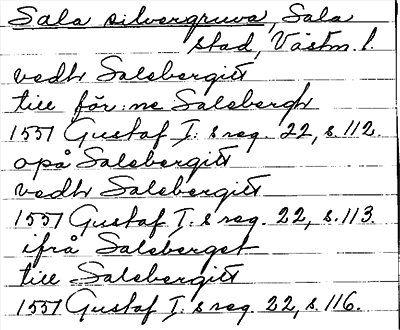 Sala silvergruva, Sala
stad, Västm. l.
vedh Salebergitt
till för:ne Salebergh
1551 Gustaf I:s reg. 22, s. 112.
opå Salebergitt
vedh Salebergitt
1551 Gustaf I:s reg. 22, s. 113.
ifrå Saleberget
till Salebergitt
1551 Gustaf I:s reg. 22, s. 116.